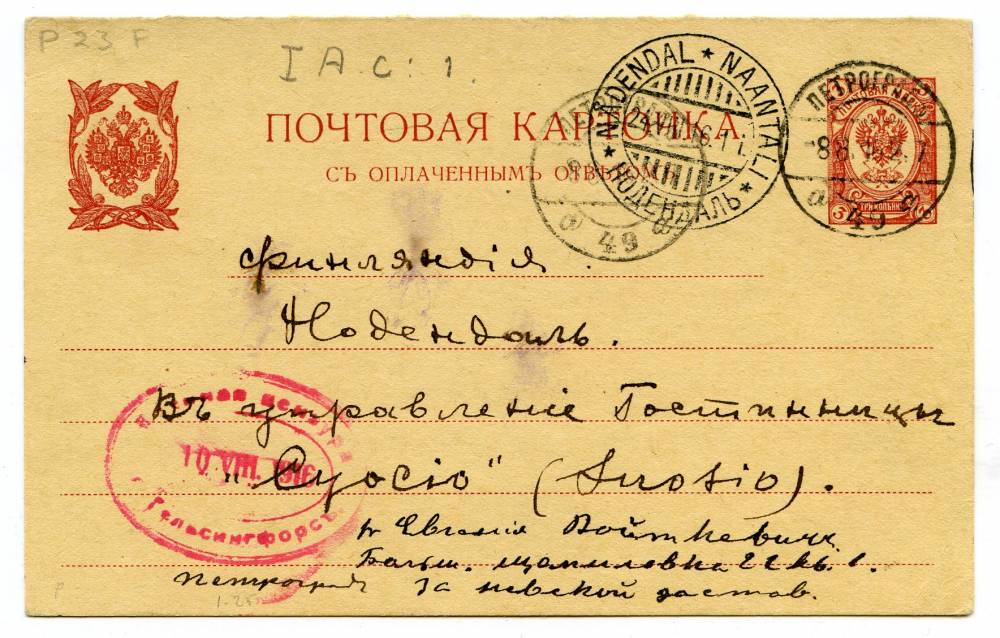 P 23 F
I A. c: 1.
ПОЧТОВАЯ КАРТОЧКА
СЪ ОПЛАЧЕННЫМЪ ОТВѢТОМЪ
NÅDENDAL * NAANTALI * НОДЕНДАЛЬ *
ПЕТРОГРАД
49
ПЕТРОГРАД
49
ПОЧТОВАЯ МАРКА
ТРИ КОПѢЙКИ
Финляндія.
Нодендаль.
Въ управленіе Гостинницы
"Суосіо" (Suosio).
Евгенія Войткевичъ
Больш. Щемиловка 22 кв. 1.
Петроград За Невской застав.
Военная цензура
10 VIII. 1916
Гельсингфорсъ